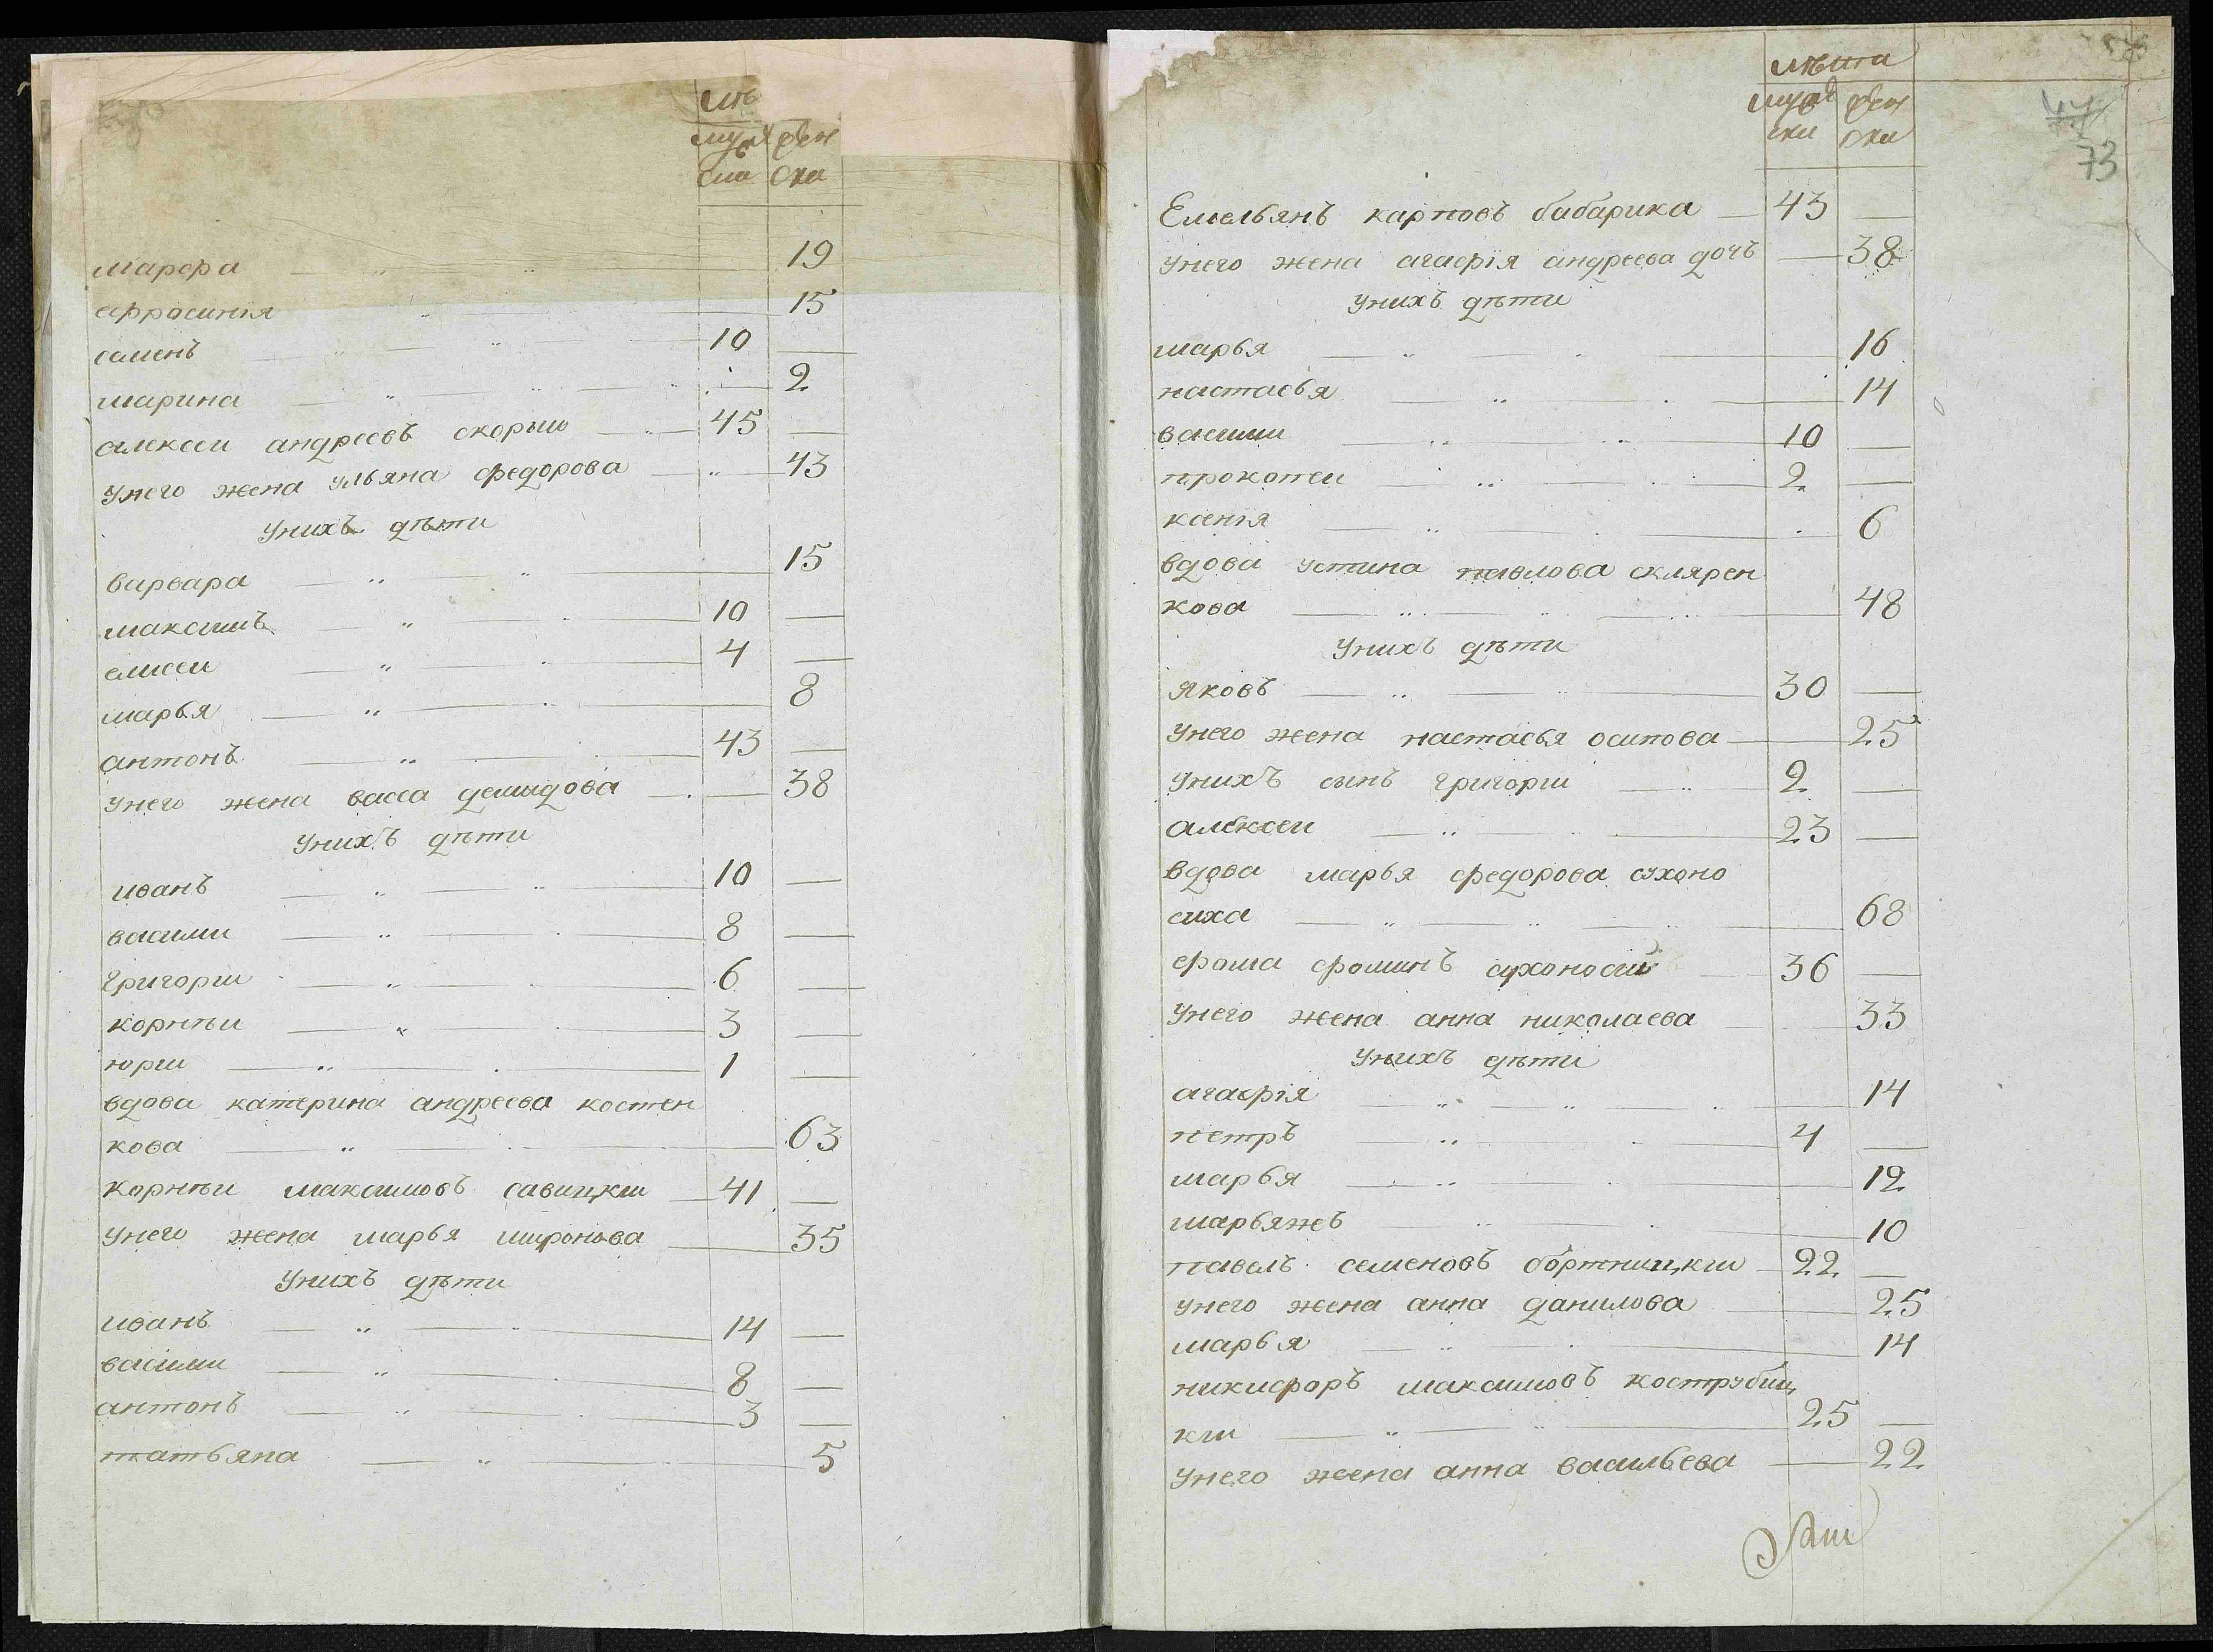 лѣ
мужс жен
ска ска
марфа 19
ефросинія 15
семенъ 10
марина 2
алексеи андреевъ скорыи 45
унего жена ульяна федорова 43
унихъ дѣти
варвара 15
максимъ 10
елисеи 4
марья 8
антонъ 43
унего жена васса демидова 38
унихъ дѣти
иванъ 10
васили 8
григори 6
корнѣи 3
юри 1
вдова катерина андреева костен
кова 63
корнѣи максимовъ савицки 41
унего жена марья миронова 35
унихъ дѣти
иванъ 14
васили 8
антонъ 3
татьяна 5
лѣта
мужс жен
ски ска
73
Емельянъ карповъ бабарика 43
унего жена агафія андреева дочь 38
унихъ дѣти
марья 16
настасья 14
васили 10
прокопеи 2
ксенія 6
вдова устина павлова склярен
кова 48
унихъ дѣти
яковъ 30
унего жена настасья осипова 25
унихъ сынъ григори 2
алексеи 23
вдова марья федорова сухоно
сиха 68
фома фоминъ сухоноси 36
унего жена анна николаева 33
унихъ дѣти
агафія 14
петръ 4
марья 12
марьянъ 10
павелъ семеновъ бортницки 22
унего жена анна данилова 25
марья 14
никифоръ максимовъ кострубиц
ки 25
унего жена анна васильева 22